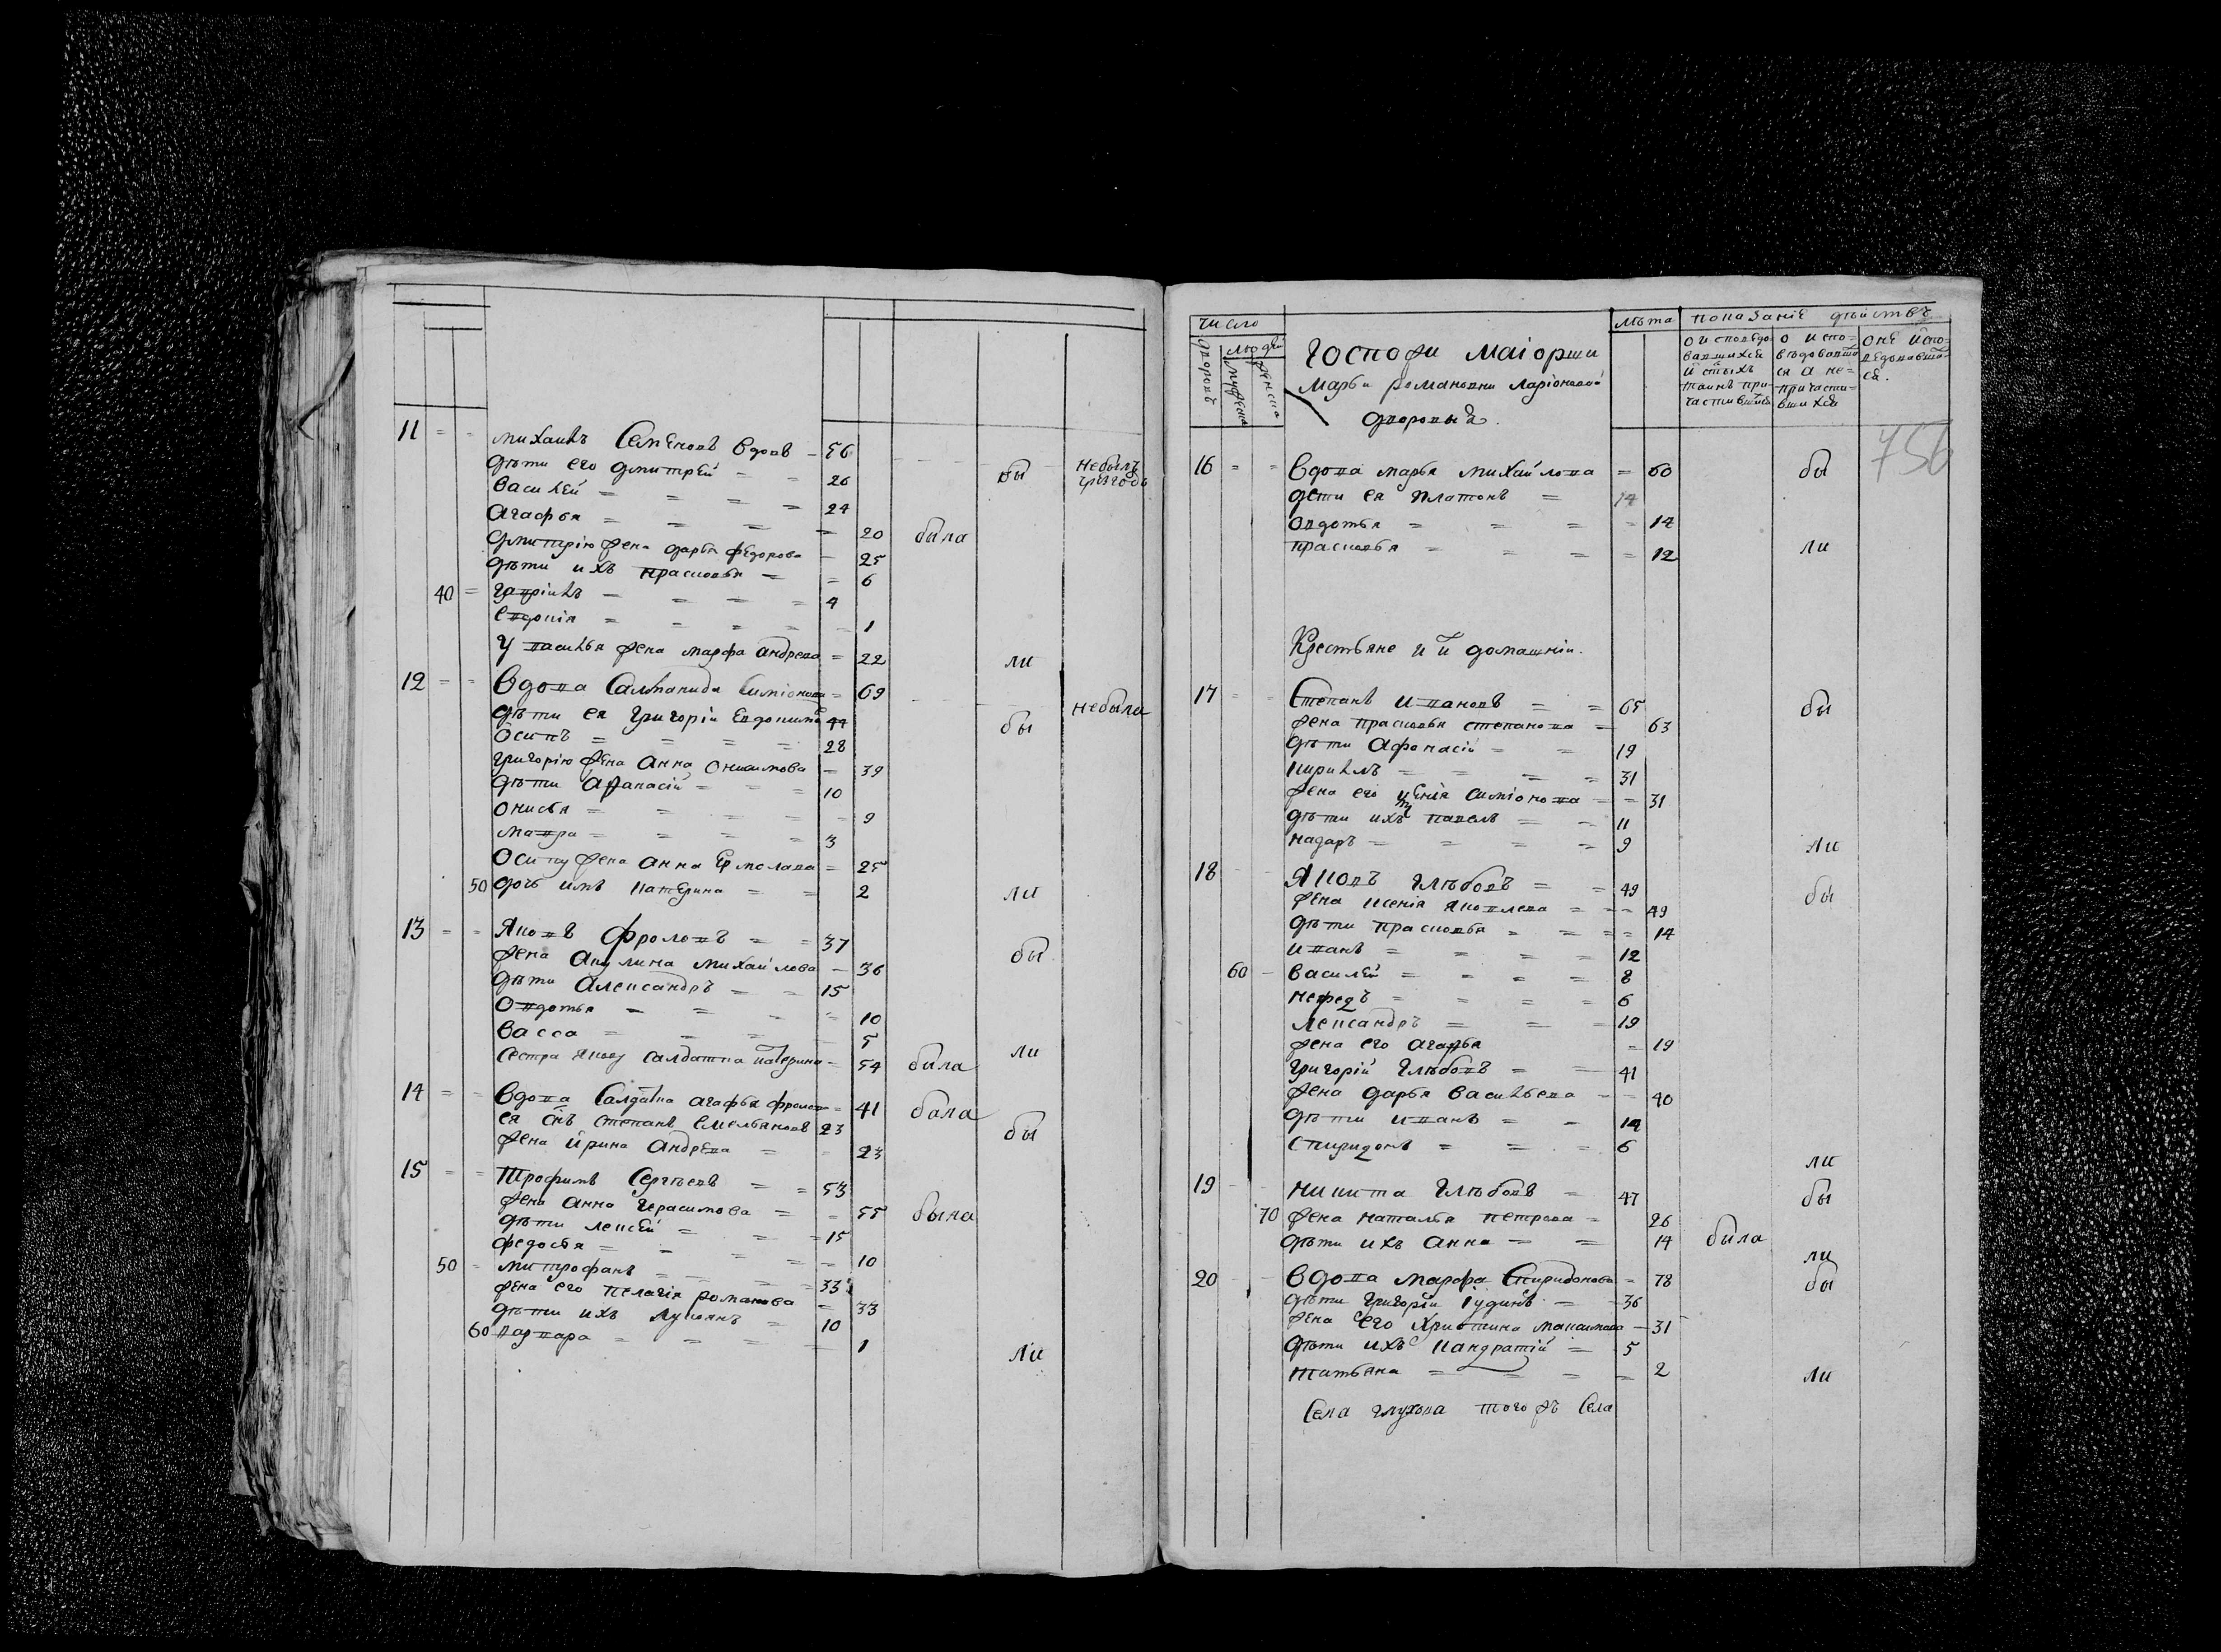 11 = = михаилъ Семеновъ вдовъ - 56
дѣти его дмитрей = = 26 бы небылъ
василей = = = 24
Агафья = = = 20 была
дмитрію жена дарья федорова - 25
дѣти ихъ прасковья = = 6
40 = гавріилъ - = = = 4
Євдокія = = = = 1
У василья жена марфа андрева = 22 ли
12 = = Вдова Салманида Симіонова = 69 небыла
дѣти ея григорій Евдокимовъ 44 бы
Осипъ = = = = 28
григорію жена анна онисимова - 39
дѣти афанасій = = = 10
онисья = = = = 9
мавра = = = = 3
Осипу жена анна Ермолаева = 25
50 дочь имъ катерина = = 2 ли
13 = = Яковъ Фроловъ = = 37
жена акулина михайлова - 36 бы
дѣти александръ = = 15
Овдотья = = = 10
васса = = = = 5
сестра якову салдатка катерина - 54 была ли
14 = = вдова Салдатка агафья фролова = 41 была
ея снъ степанъ Емельяновъ 23 бы
жена ирина андрева = = 23
15 = = Трофимъ Сергѣевъ = = 53
жена анна герасимова = = 55 была
дѣти лексей = = = 15
федосья = = = = 10
50 = митрофанъ = = = 33
жена его пелагія романова = 33
дѣти ихъ лукоянъ = 10
60 варвара = = = 1 ли
число лѣта показаніе дѣйствъ
дворовъ людей
мужеска женска
Госпожи маіорши
марьи романовни ларіоновой
дворовыя.
о исповѣдо-
вавшихся
и стыхъ
таинъ при-
частившихся
о испо-
вѣдовавши
ся а не=
причасти=
вшихся
о не испо=
ведовавши
ся.
756
16 = = вдова марья михайлова = 60 бы
дети ея платонъ = 14
овдотья = = = = 14
прасковья = = = = 12 ли
Крестьяне и ихъ домашніи.
17 = - Степанъ ивановъ = = 65 бы
жена прасковья степанова = 63
дѣти Афонасій = = 19
кирилъ = = = = 31
жена его Симіонова = = 31
дѣти ихъ павелъ = = 11
назаръ = = = = 9 ли
18 - - Яковъ глѣбовъ = = 49 бы
жена ксенія яковлева = = = 49
дѣти прасковья = = = = 14
иванъ = = = = 12
60 - василей = = = = 8
нефедъ = = = = 6
Лександръ = = = 19
жена его агафья = 19
григорій глѣбовъ = = 41
жена дарья васильева = - 40
дѣти иванъ = = 12
спиридонъ = = = 6 ли
19 - - никита глѣбовъ = 47 бы
70 жена наталья петрова = 26
дѣти ихъ анна = = 14 была ли
20 - - вдова марфа Спиридонова = 78 бы
дѣти григорій іудинъ = = 36
жена его христина максимова = 31
дѣти ихъ кандратій = 5
татьяна = = = = 2 ли
Села глухова того жъ села